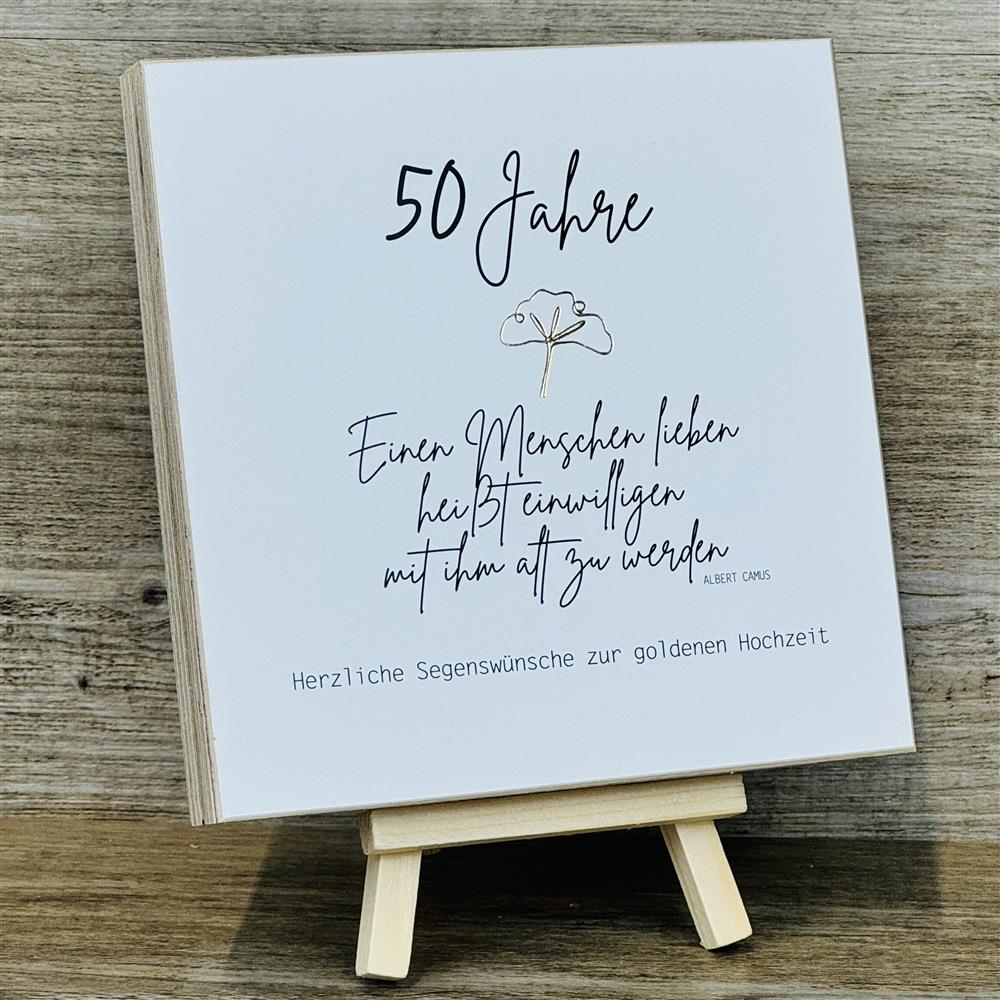 50 Jahre
Einen Menschen lieben
heißt einwilligen
mit ihm alt zu werden
ALBERT CAMUS
Herzliche Segenswünsche zur goldenen Hochzeit